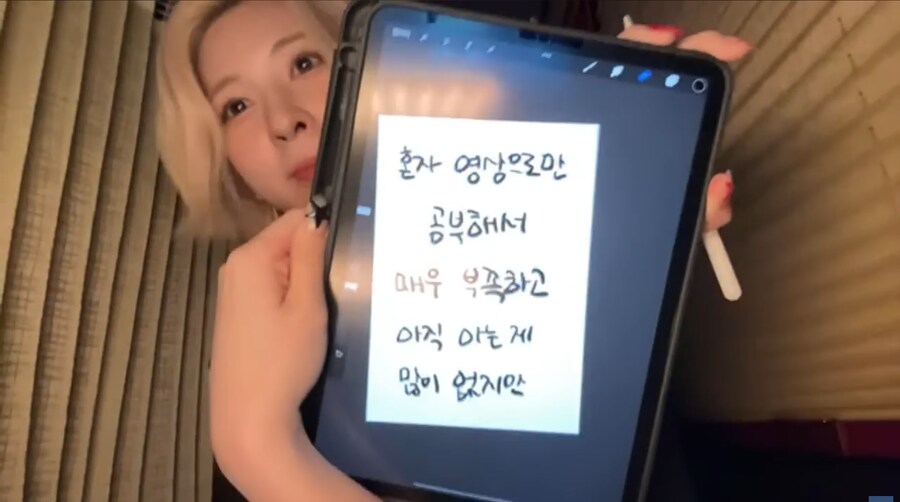 혼자 영상으로만
공부해서
매우 부족하고
아직 아는게
많이 없지만